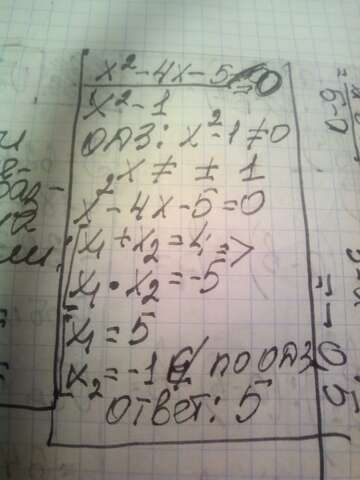 x²-4x-5=0
x²-1
ОДЗ: x²-1≠0
x≠±1
x²-4x-5=0
x₁+x₂=4 =>
x₁•x₂=-5
x₁=5
x₂=-1 ∉ по ОДЗ
Ответ: 5